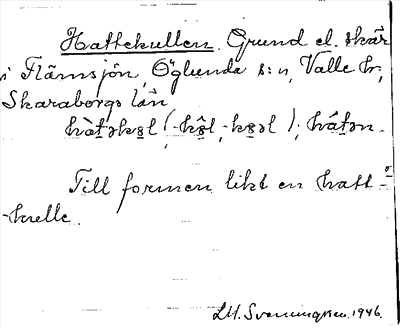 Hattekullen. Grund el. skär
i Flämsjön, Öglunda s:n, Valle hr,
Skaraborgs län
Till formen likt en hatt-
-kulle.
LM. Svenningsen. 1946.